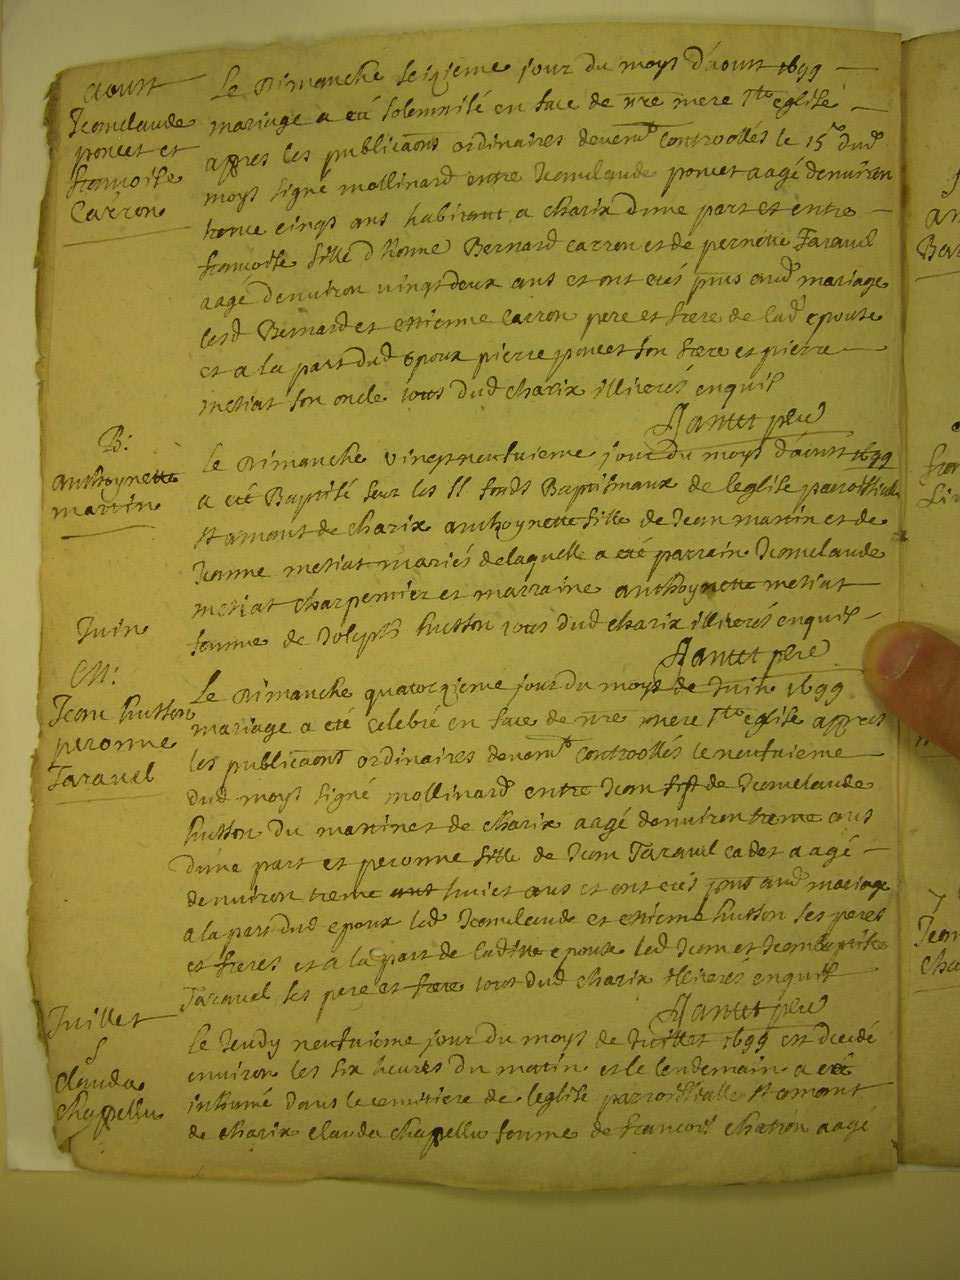 Aoust
Jeanclaude
poncet et
francoise
Carron
Le Dimanche seizieme jour du moys d'aoust 1699
mariage a eté solemnisé en face de nre mere Ste eglise
appres les publicaons ordinaires devemt controollés le 15e dud
moys signé mollinard entre Jeanclaude poncet aagé denviron
trente cinqs ans habitant a charix dune part et entre
francoise fille d'honne Bernard carron et de pernette Taravel
aagé denviron vingt deux ans et ont etés pnts aud mariage
lesd Bernard et estienne carron pere et frere de lad epouse
et a la part dud epoux pierre poncet son frere et pierre
metiat son oncle tous dud charix illiterés enquis
B:
anthoynette
martin
le Dimanche vingt neufuieme jour du moys d'aoust 1699
a eté Baptisé sur les SS fonds Baptismaux de leglise parroissialle
st amont de charix anthoynette fille de Jean martin et de
Jeanne metiat mariés de laquelle a eté parrain Jeanclaude
metiat charpentier et marraine anthoynette metiat
femme de Joseph husson tous dud charix illiterés enquis
Juin
M:
Jean husson
peronne
Taravel
Le Dimanche quatorzieme jour du moys de Juin 1699
mariage a eté celebré en face de nre mere Ste eglise appres
les publicaons ordinaires devemt controollés le neufuieme
dud moys signé mollinard entre Jean fils de Jeanclaude
husson du martinet de charix aagé denviron trente ans
dune part et peronne fille de Jean Taravel cadet aagé
denviron trente ant huict ans et ont etés pnts aud mariage
a la part dud epoux led Jeanclaude et estienne husson ses peres
et freres et a la part de ladite epouse led Jean et Jean baptiste
Taravel ses pere et frere tous dud charix illiterés enquis
Juillet
S
clauda
chapellu
Le Jeudy neufuieme jour du moys de Juillet 1699 est decedé
environ les six heures du matin et le lendemain a eté
inhumé dans le cemitiere de leglise parroissialle st amont
de charix clauda chapellu femme de francois chatron aagé